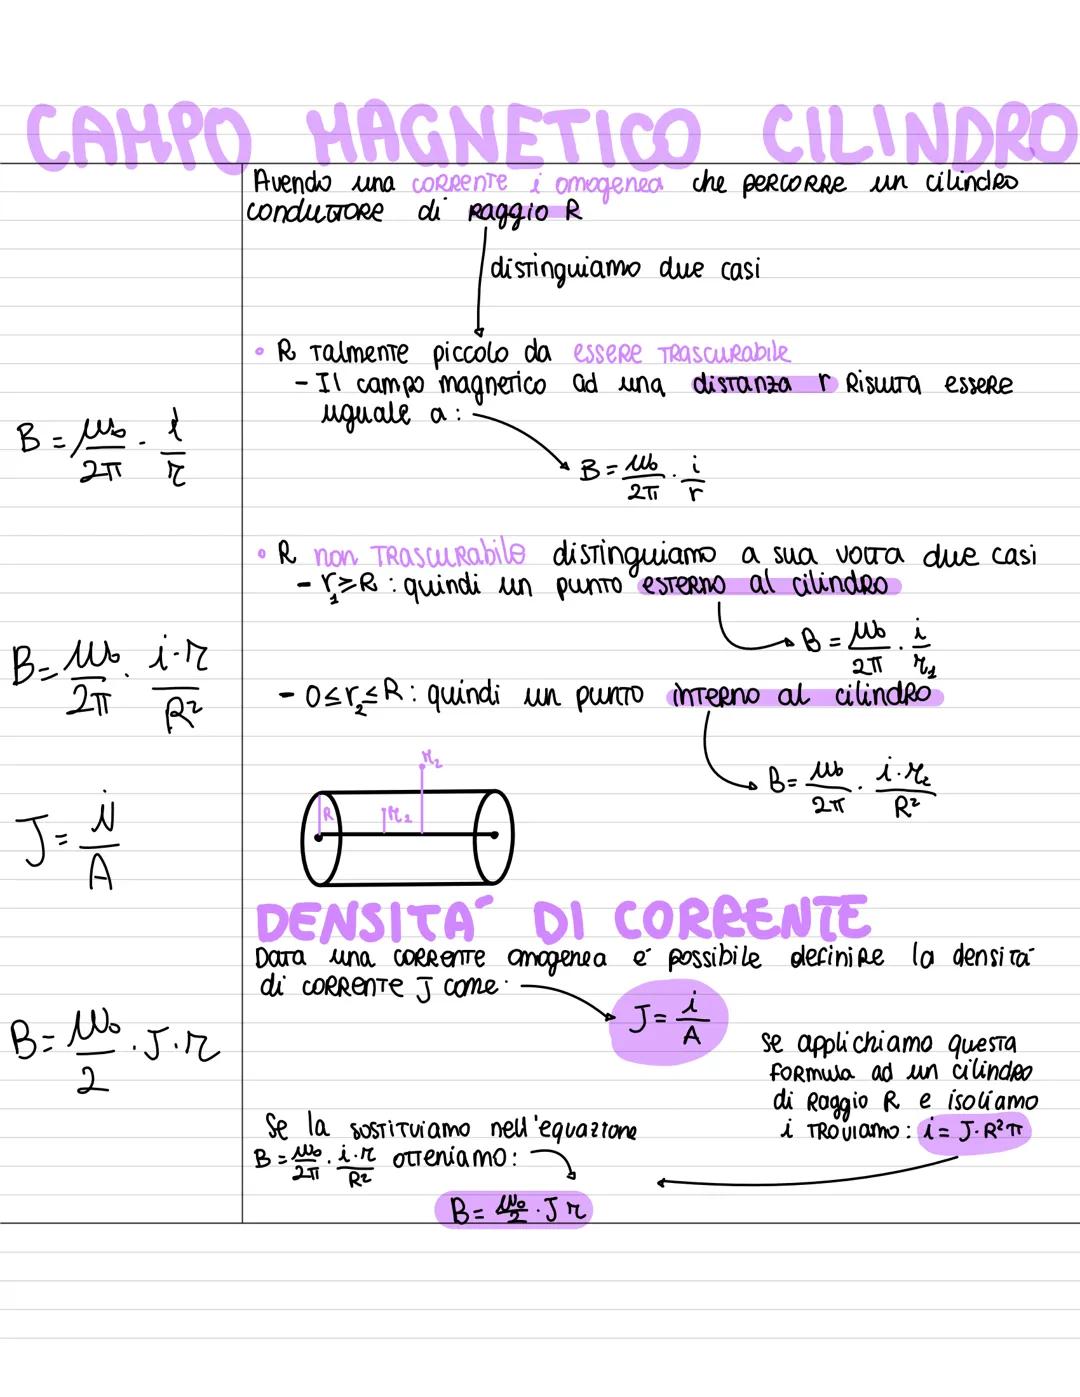 CAMPO MAGNETICO CILINDRO
Avendo una corrente i omogenea che percorre un cilindro
conduttore di raggio R
distinguiamo due casi
• R talmente piccolo da essere trascurabile
- Il campo magnetico ad una distanza r risulta essere
uguale a:
B = μ₀/2π · i/r
B = μ₀/2π · i/r
• R non trascurabile distinguiamo a sua volta due casi
- r₁≥R : quindi un punto esterno al cilindro
B = μ₀/2π · i/r₁
B = μ₀/2π · i·r/R²
- 0≤r₂≤R : quindi un punto interno al cilindro
B = μ₀/2π · i·r₂/R²
r₂
R
r₁
J = i/A
DENSITA´ DI CORRENTE
Data una corrente omogenea é possibile definire la densitá
di corrente J come:
J = i/A
B = μ₀/2 · J·r
Se applichiamo questa
formula ad un cilindro
di Raggio R e isoliamo
i troviamo: i = J·R²π
Se la sostituiamo nell'equazione
B = μ₀/2π · i·r/R² otteniamo:
B = μ₀/2 · J r